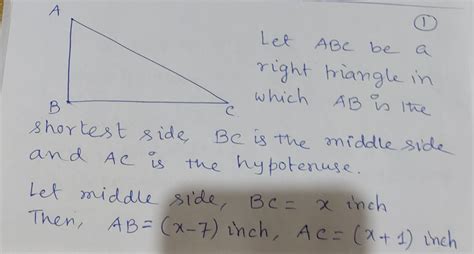 A
B
C
①
Let ABC be a
right triangle in
which AB is the
shortest side, BC is the middle side
and AC is the hypotenuse.
Let middle side, BC = x inch
Then, AB = (x-7) inch, AC = (x+1) inch